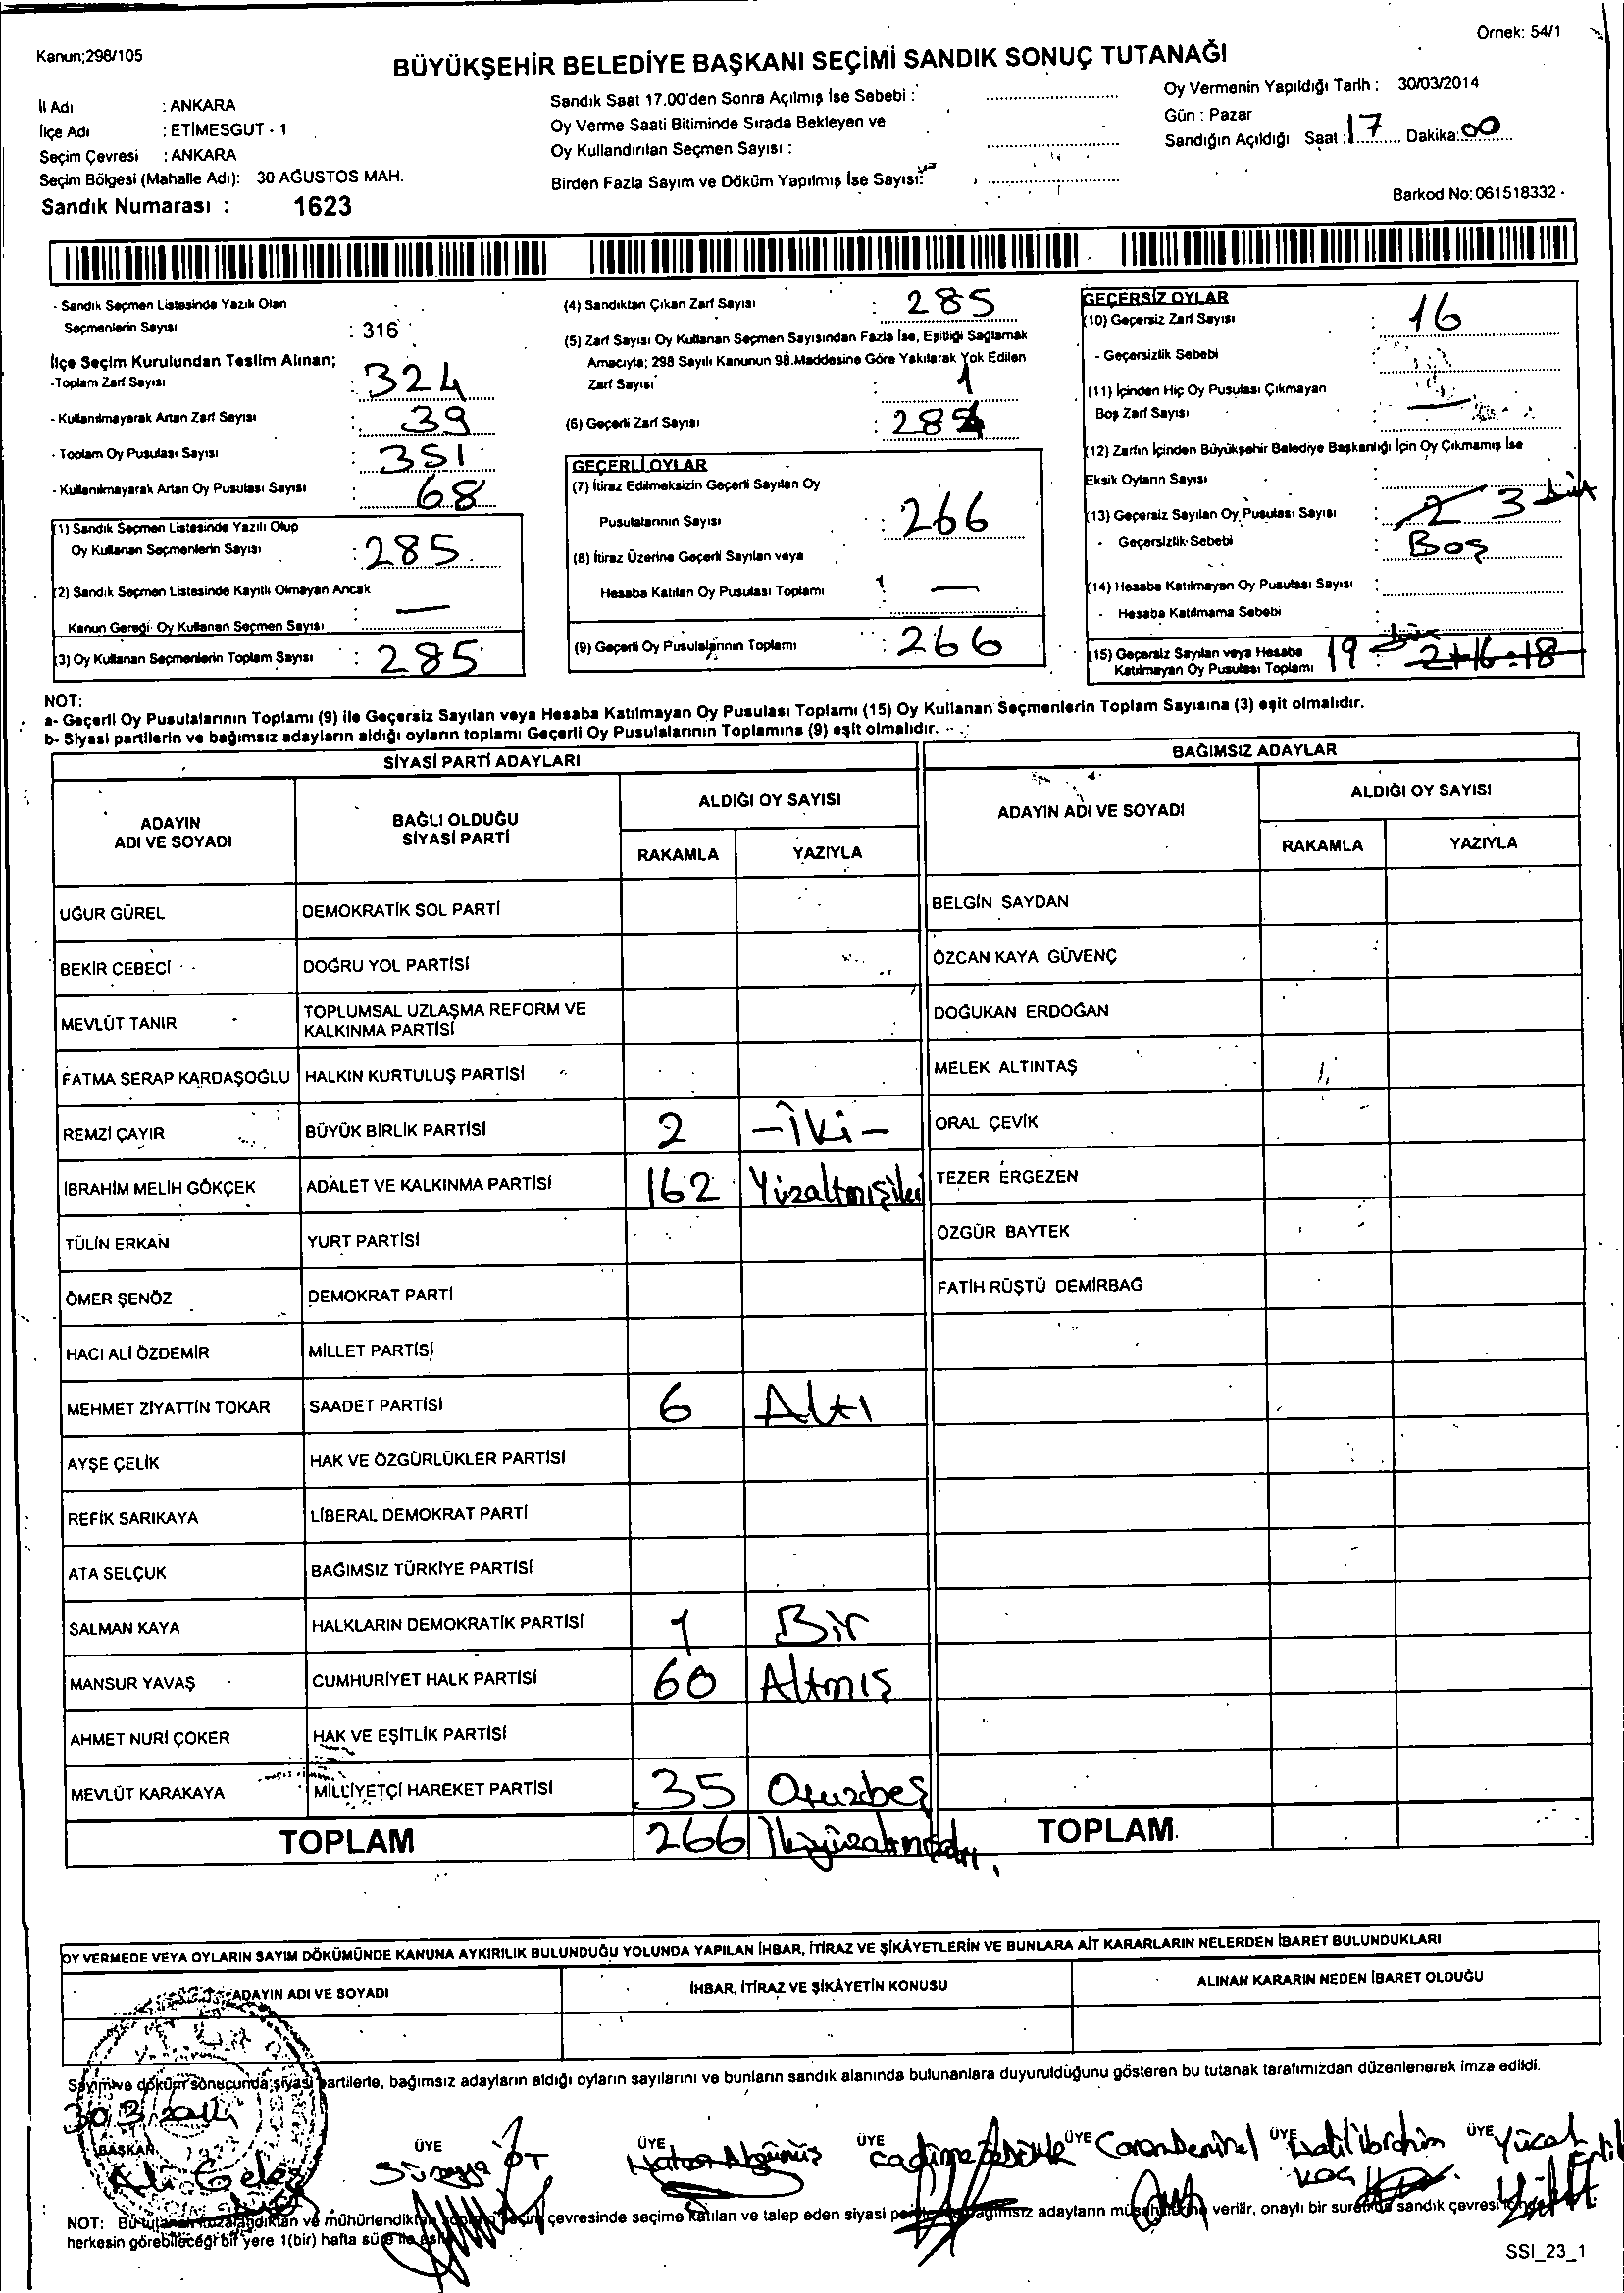 Örnek: 54/1
Kanun;298/105
BÜYÜKŞEHİR BELEDİYE BAŞKANI SEÇİMİ SANDIK SONUÇ TUTANAĞI
İl Adı : ANKARA
İlçe Adı : ETİMESGUT - 1
Seçim Çevresi : ANKARA
Seçim Bölgesi (Mahalle Adı): 30 AĞUSTOS MAH.
Sandık Numarası : 1623
Sandık Saat 17.00'den Sonra Açılmış İse Sebebi :
Oy Verme Saati Bitiminde Sırada Bekleyen ve
Oy Kullandırılan Seçmen Sayısı :
Birden Fazla Sayım ve Döküm Yapılmış İse Sayısı:
Oy Vermenin Yapıldığı Tarih : 30/03/2014
Gün : Pazar
Sandığın Açıldığı Saat : 17 Dakika: 00
Barkod No: 061518332 -
- Sandık Seçmen Listesinde Yazılı Olan
Seçmenlerin Sayısı : 316
İlçe Seçim Kurulundan Teslim Alınan;
-Toplam Zarf Sayısı : 324
- Kullanılmayarak Artan Zarf Sayısı : 39
- Toplam Oy Pusulası Sayısı : 351
- Kullanılmayarak Artan Oy Pusulası Sayısı : 68
(1) Sandık Seçmen Listesinde Yazılı Olup
Oy Kullanan Seçmenlerin Sayısı : 285
(2) Sandık Seçmen Listesinde Kayıtlı Olmayan Ancak
Kanun Gereği Oy Kullanan Seçmen Sayısı : —
(3) Oy Kullanan Seçmenlerin Toplam Sayısı : 285
(4) Sandıktan Çıkan Zarf Sayısı : 285
(5) Zarf Sayısı Oy Kullanan Seçmen Sayısından Fazla İse, Eşitliği Sağlamak
Amacıyla; 298 Sayılı Kanunun 98.Maddesine Göre Yakılarak Yok Edilen
Zarf Sayısı : 1
(6) Geçerli Zarf Sayısı : 284
GEÇERLİ OYLAR
(7) İtiraz Edilmeksizin Geçerli Sayılan Oy
Pusulalarının Sayısı : 266
(8) İtiraz Üzerine Geçerli Sayılan veya
Hesaba Katılan Oy Pusulası Toplamı : —
(9) Geçerli Oy Pusulalarının Toplamı : 266
GEÇERSİZ OYLAR
(10) Geçersiz Zarf Sayısı : 16
- Geçersizlik Sebebi :
(11) İçinden Hiç Oy Pusulası Çıkmayan
Boş Zarf Sayısı : —
(12) Zarfın İçinden Büyükşehir Belediye Başkanlığı İçin Oy Çıkmamış İse
Eksik Oyların Sayısı :
(13) Geçersiz Sayılan Oy Pusulası Sayısı : 2 3
- Geçersizlik Sebebi : Boş
(14) Hesaba Katılmayan Oy Pusulası Sayısı :
- Hesaba Katılmama Sebebi :
(15) Geçersiz Sayılan veya Hesaba
Katılmayan Oy Pusulası Toplamı 19 : 2+16=18
NOT:
a- Geçerli Oy Pusulalarının Toplamı (9) ile Geçersiz Sayılan veya Hesaba Katılmayan Oy Pusulası Toplamı (15) Oy Kullanan Seçmenlerin Toplam Sayısına (3) eşit olmalıdır.
b- Siyasi partilerin ve bağımsız adayların aldığı oyların toplamı Geçerli Oy Pusulalarının Toplamına (9) eşit olmalıdır.
SİYASİ PARTİ ADAYLARI
BAĞIMSIZ ADAYLAR
ADAYIN
ADI VE SOYADI
BAĞLI OLDUĞU
SİYASİ PARTİ
ALDIĞI OY SAYISI
RAKAMLA YAZIYLA
ADAYIN ADI VE SOYADI
ALDIĞI OY SAYISI
RAKAMLA YAZIYLA
UĞUR GÜREL DEMOKRATİK SOL PARTİ BELGİN SAYDAN
BEKİR CEBECİ DOĞRU YOL PARTİSİ ÖZCAN KAYA GÜVENÇ
MEVLÜT TANIR TOPLUMSAL UZLAŞMA REFORM VE
KALKINMA PARTİSİ DOĞUKAN ERDOĞAN
FATMA SERAP KARDAŞOĞLU HALKIN KURTULUŞ PARTİSİ MELEK ALTINTAŞ
REMZİ ÇAYIR BÜYÜK BİRLİK PARTİSİ 2 -İki- ORAL ÇEVİK
İBRAHİM MELİH GÖKÇEK ADALET VE KALKINMA PARTİSİ 162 Yüzaltmışiki TEZER ERGEZEN
TÜLİN ERKAN YURT PARTİSİ ÖZGÜR BAYTEK
ÖMER ŞENÖZ DEMOKRAT PARTİ FATİH RÜŞTÜ DEMİRBAĞ
HACI ALİ ÖZDEMİR MİLLET PARTİSİ
MEHMET ZİYATTİN TOKAR SAADET PARTİSİ 6 Altı
AYŞE ÇELİK HAK VE ÖZGÜRLÜKLER PARTİSİ
REFİK SARIKAYA LİBERAL DEMOKRAT PARTİ
ATA SELÇUK BAĞIMSIZ TÜRKİYE PARTİSİ
SALMAN KAYA HALKLARIN DEMOKRATİK PARTİSİ 1 Bir
MANSUR YAVAŞ CUMHURİYET HALK PARTİSİ 60 Altmış
AHMET NURİ ÇOKER HAK VE EŞİTLİK PARTİSİ
MEVLÜT KARAKAYA MİLLİYETÇİ HAREKET PARTİSİ 35 Otuzbeş
TOPLAM 266 TOPLAM
OY VERMEDE VEYA OYLARIN SAYIM DÖKÜMÜNDE KANUNA AYKIRILIK BULUNDUĞU YOLUNDA YAPILAN İHBAR, İTİRAZ VE ŞİKÂYETLERİN VE BUNLARA AİT KARARLARIN NELERDEN İBARET BULUNDUKLARI
ADAYIN ADI VE SOYADI İHBAR, İTİRAZ VE ŞİKÂYETİN KONUSU ALINAN KARARIN NEDEN İBARET OLDUĞU
Sayım ve döküm sonucunda siyasi partilerle, bağımsız adayların aldığı oyların sayılarını ve bunların sandık alanında bulunanlara duyurulduğunu gösteren bu tutanak tarafımızdan düzenlenerek imza edildi.
30.3.2014
BAŞKAN ÜYE ÜYE ÜYE ÜYE ÜYE ÜYE
Süreyya Halil İbrahim Yücel
KOÇ
NOT: Bu tutanak imzalandıktan ve mühürlendikten seçim çevresinde seçime katılan ve talep eden siyasi bağımsız adayların verilir, onaylı bir sandık çevresi
herkesin görebileceği bir yere 1(bir) hafta süre ile
SSI_23_1